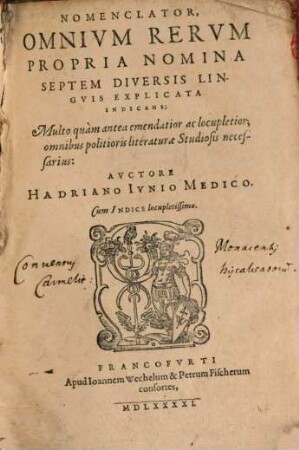 NOMENCLATOR,
OMNIVM RERVM
PROPRIA NOMINA
SEPTEM DIVERSIS LIN-
GVIS EXPLICATA
INDICANS:
Multo quàm antea emendatior ac locupletior,
omnibus politioris literaturæ Studiosis neces-
sarius:
AVCTORE
HADRIANO IVNIO MEDICO.
Cum INDICE locupletissimo.
Conventus
Carmelit:
FRANCOFVRTI
Apud Ioannem Wechelum & Petrum Fischerum
consortes,
MDLXXXXI.